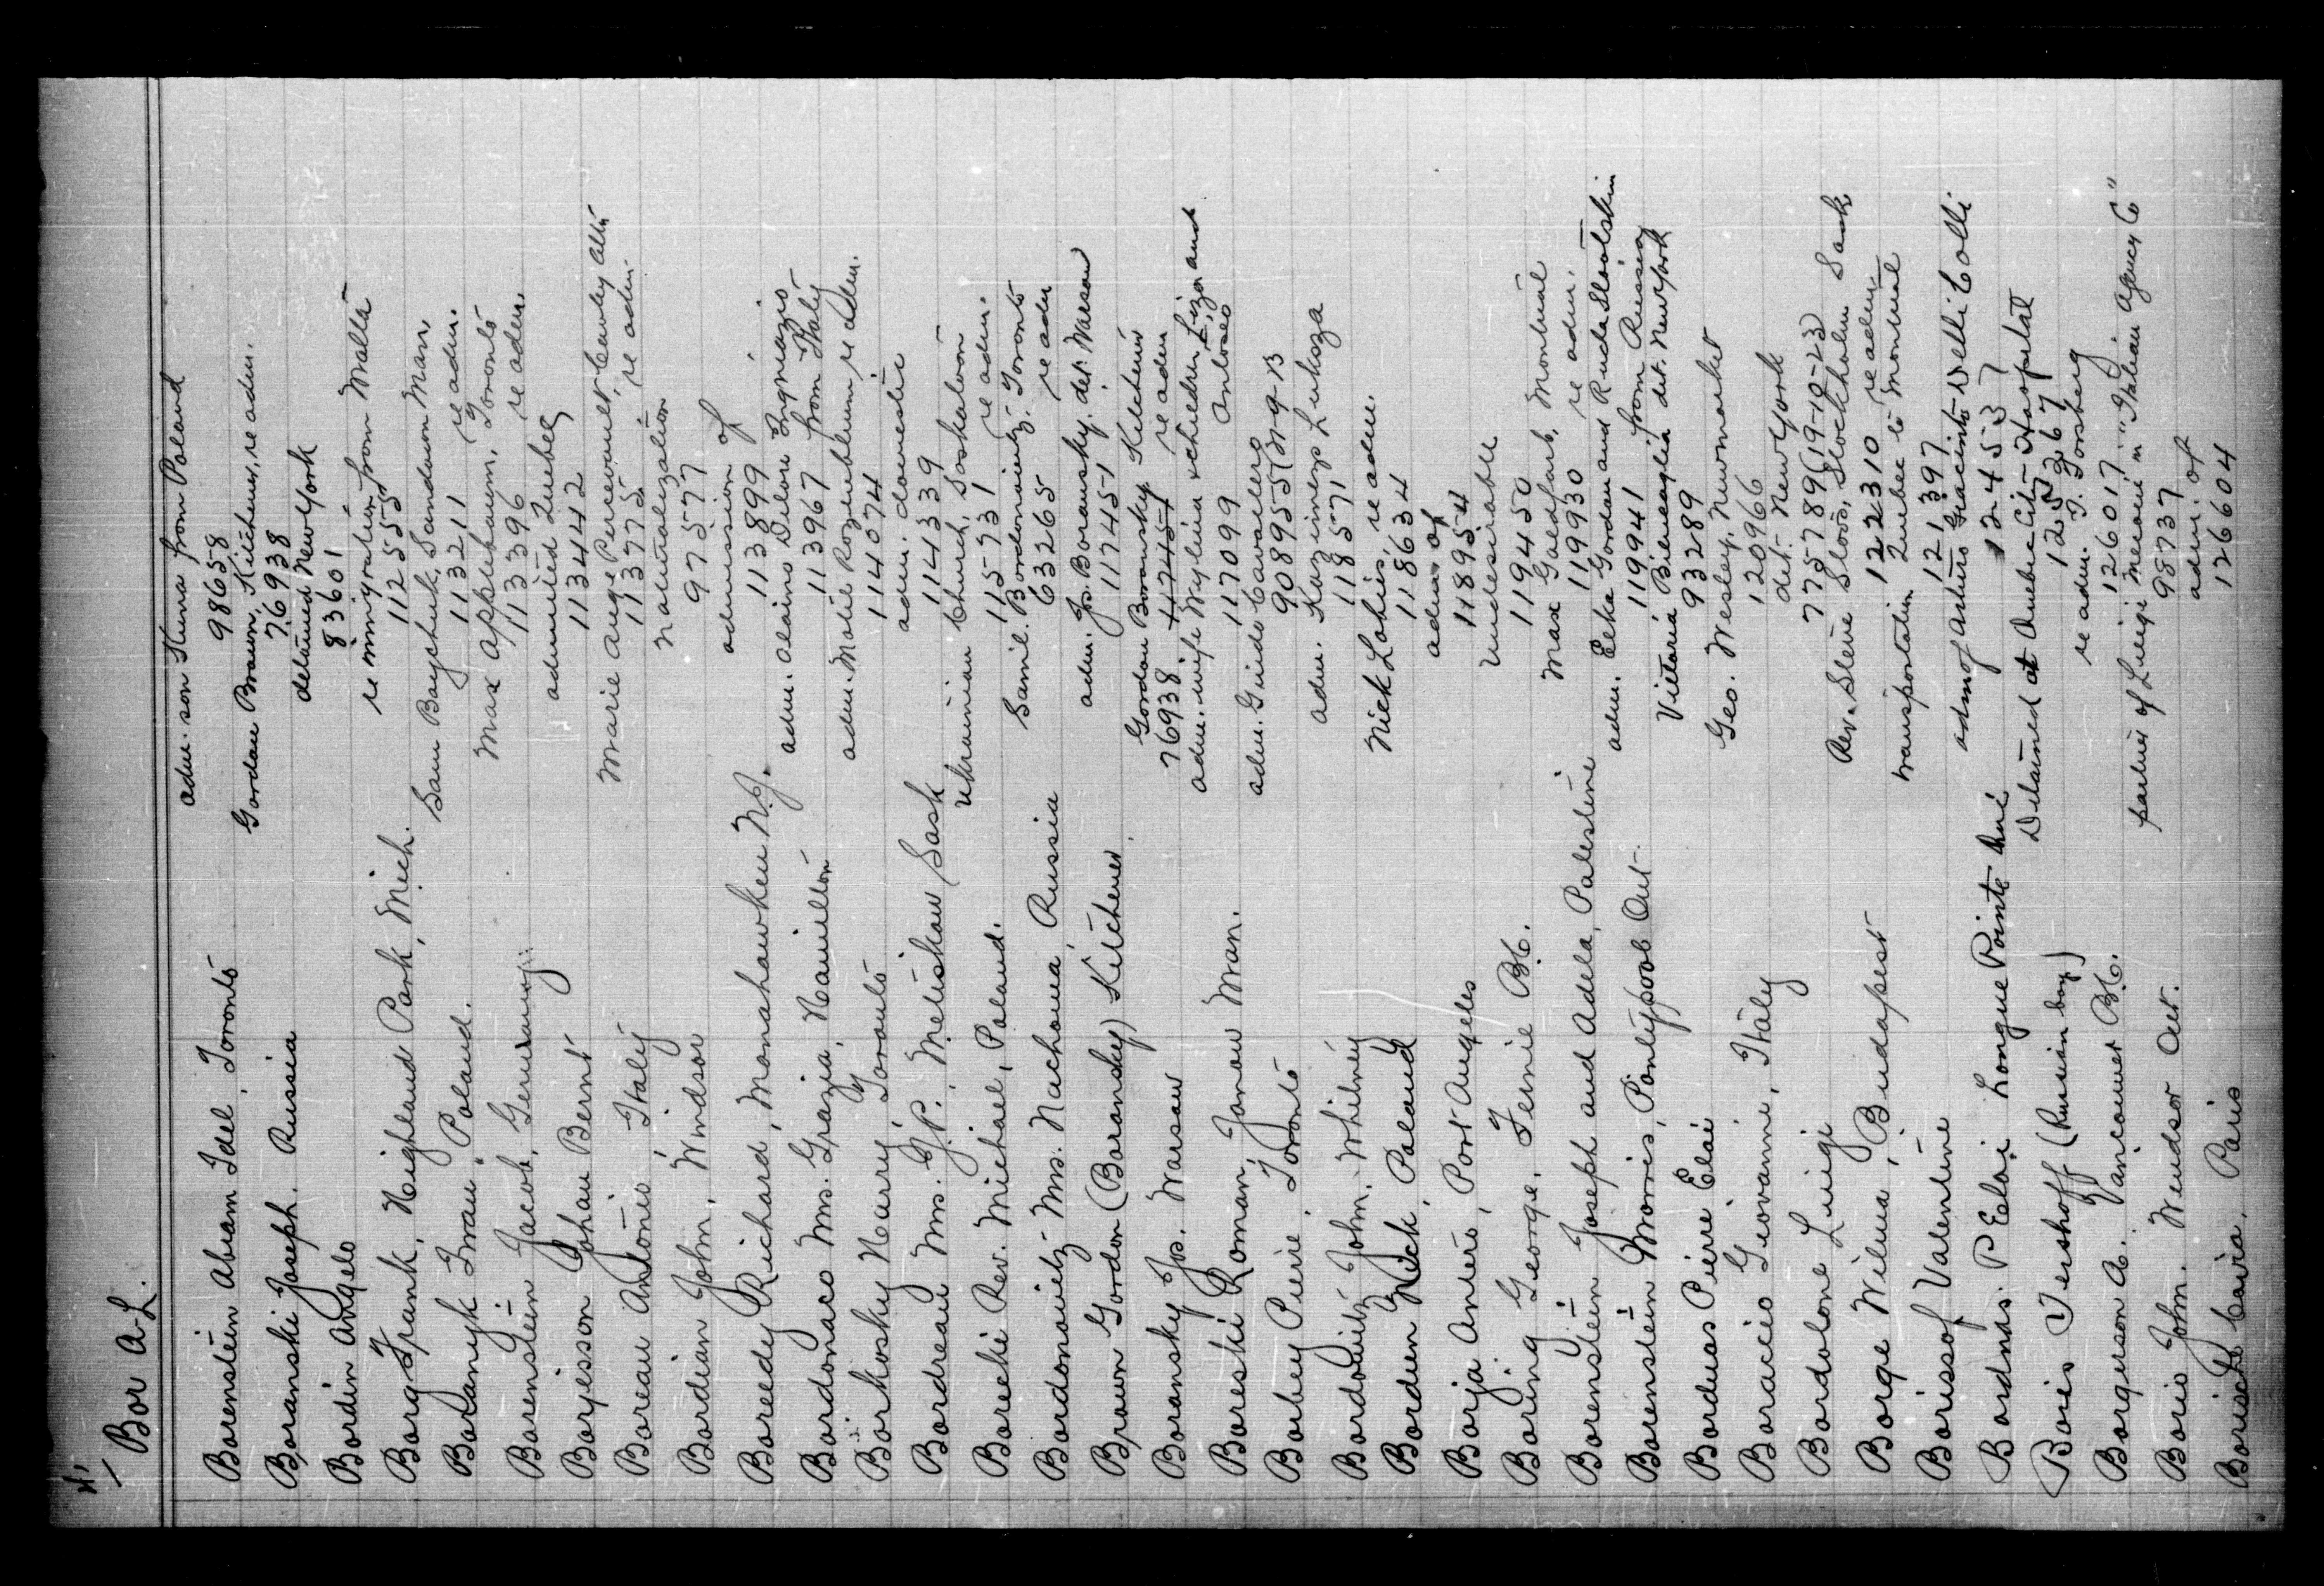 4,
Bor A-L.
Borenstein Abram Idel, Toronto adm. son Huna from Poland
98658
Boranski Joseph. Russia Gordon Brown, Kitchener, re adm.
76938
Bordin Angelo detained New York
83601
Borg Frank, Highland Park, Mich. re immigration from Malta
112555
Boranyk Iwan, Poland. Sam Boychuk, Sandown Man,
113211 re adm.
Borenstein Jacob, Germany Max Applebaum, Toronto
113396 re adm.
Borjesson Johan Bernt admitted Quebec
113442
Boreau Antonio, Italy Marie Ange Perreault, Cowley Alta
113775 re adm.
Bordian John, Windsor Naturalization
97577
Boreedy Richard, Monahawken N.J. admission of
113899
Bordonaco Mrs. Grazia, Hamilton adm. Alaimo Delore Ingnazio
113967 from Italy
Borkosky Harry, Toronto adm. Motie Rozenblum re adm.
114074
Bordreau Mrs. J.P. Metiskow Sask adm. domestic
114339
Borecki Rev. Michael, Poland. Ukrainian Church, Saskatoon
115731 re adm.
Bordonowitz Mrs. Nachoma, Russia Samil. Bordonowitz. Toronto
63265 re adm
Brown Gordon (Boransky) Kitchener adm. Jos. Boransky. det. Warsaw
117451
Boransky Jos. Warsaw Gordon Boransky Kitchener
76938 117451 re adm
Boreski Roman, Janow Man. adm. wife & children, Liza and
117099
Borbey Pierre, Toronto adm. Guido Cavallero
908955 (M-9-13
Bordowitz John. Whitney adm. Kazimerz Lukoza
118571
Borden Nick, Poland Nick Lokies, re adm.
118634
Borja Antero, Port Angeles adm of
118954
Boring George, Fernie B.C. Undesirable
119450
Borenstein Joseph and Adela, Palestine Max Goldfarb, Montreal
119930 re adm.
Borenstein Morris, Pontypool Ont. adm. Eeka Gordon and Ruda Slootskin
119941 from Russia
Borduas Pierre Eloi Vittoria Bilmeaglia det. New York
93289
Boraccio Giovanni, Italy Geo. Wesley, Newmarket
120966
Bordolone Luigi det. New York
775789 (19-10-23)
Borge Wilma, Budapest Rev. Steve Stockholm Sask
122310 re adm.
Borissof Valentine transportation Quebec to Montreal
121397
Bordnas. P Eloi Longue Pointe Que adm of Arturo Giacinto Delli Colli
124537
Boris Tershoff (Russian boy) Detained at Quebec City Hospital
125267
Borgerson A. Vancouver B.C. re adm. T. Torsberg
126017
Borio John. Windsor Ont. partner of Luigi Meconi in "Italian Agency Co"
987737
Paris adm. of
126604